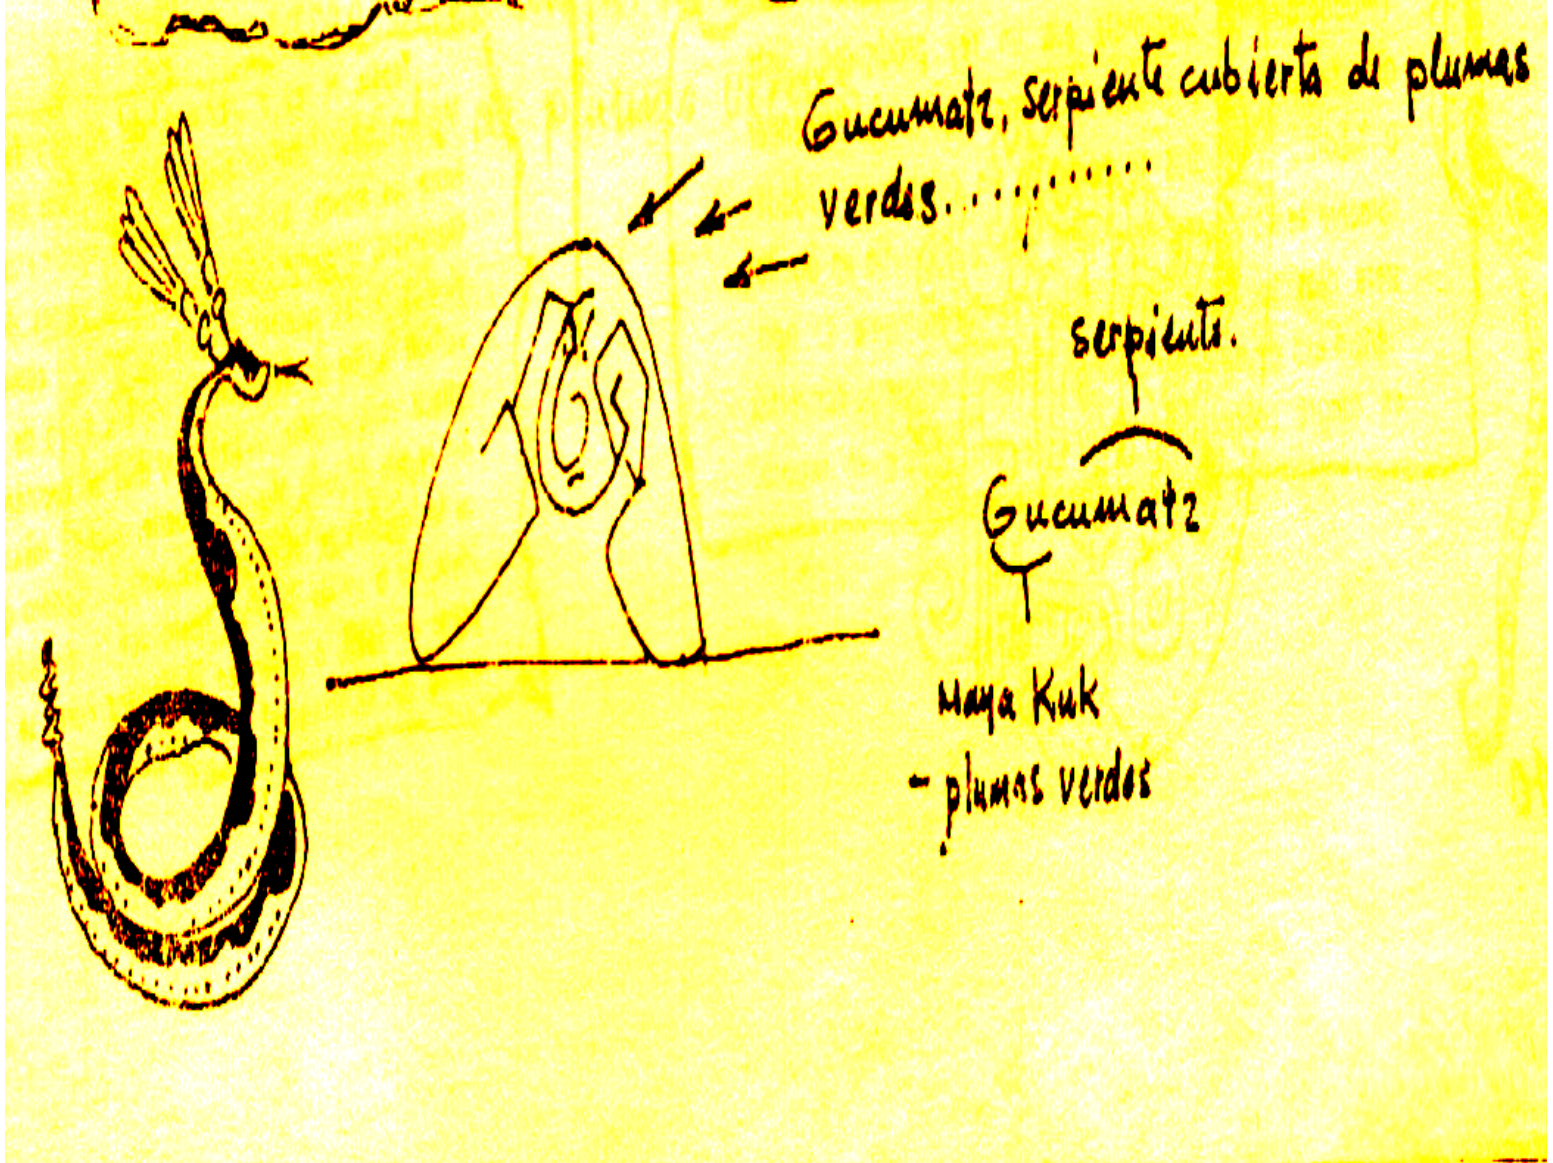 Gucumatz, serpiente cubierta de plumas
verdes...........
serpiente.
Gucumatz
Maya Kuk
- plumas verdes